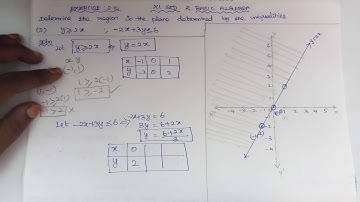 EXERCISE 2.2 XI STD 2 BASIC ALGEBRA
Determine the region in the plane determined by the inequalities
(2) y ≥ 2x, -2x+3y ≤ 6
Let y ≥ 2x y = 2x
x y
(-1,1)
1 ≥ 2(-1)
1 ≥ -2
(1,-1)
-1 ≥ 2(1)
-1 ≥ 2 x
x -1 0 1
y -2 0 2
Let -2x+3y ≤ 6 ⇒ -2x+3y = 6
3y = 6+2x
y = 6+2x
3
x 0
y 2
y=2x
-4 -3 -2 -1 1 2 3 4 5 x